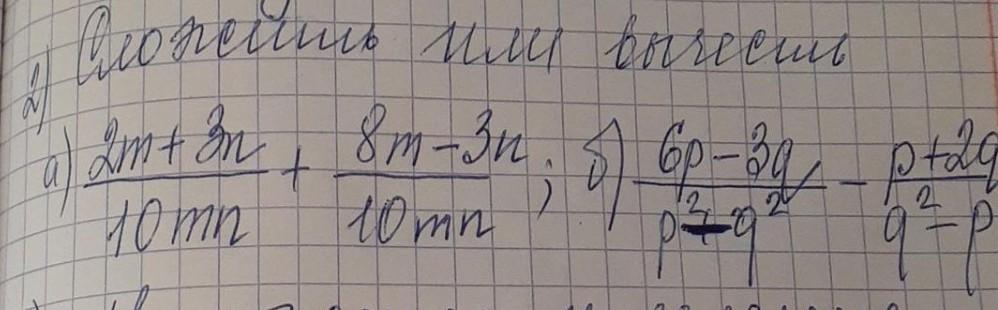 2) Сложить или вычесть
а) (2m+3n)/(10mn) + (8m-3n)/(10mn); б) (6p-3q)/(p²-q²) - (p+2q)/(q²-p